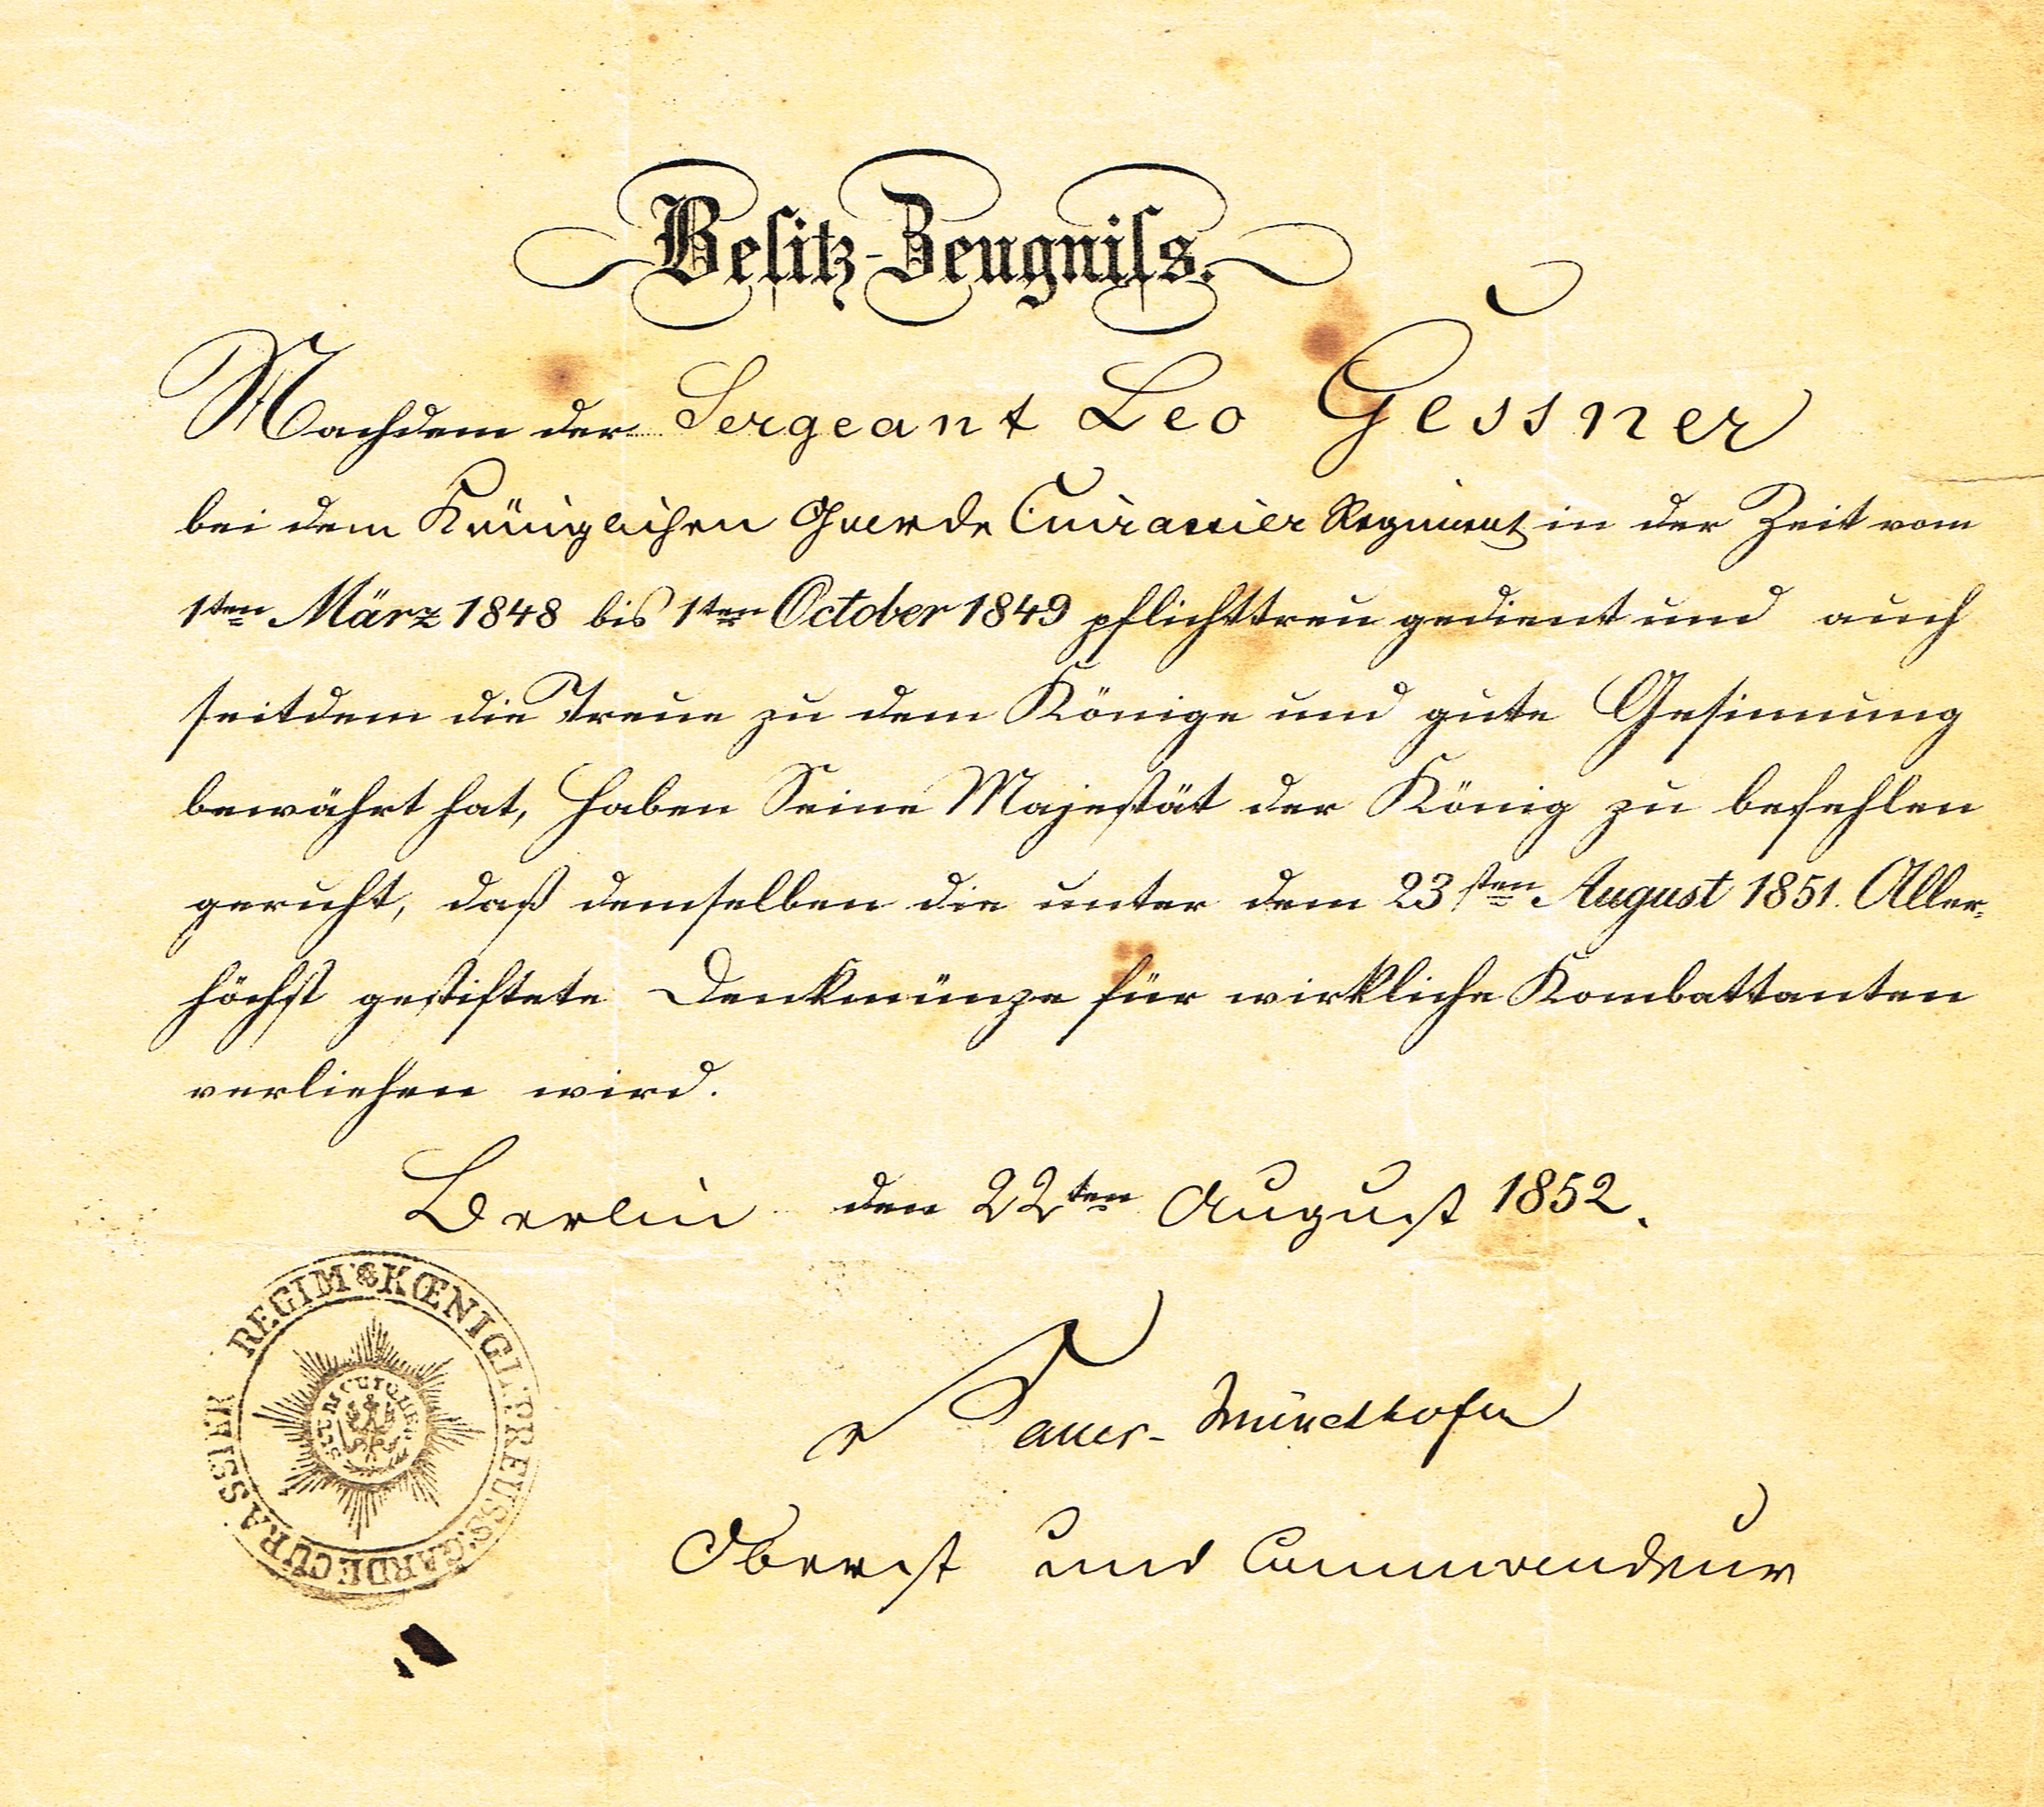 Besitz-Zeugniss.
Nachdem der Sergeant Leo Gessner
bei dem Königlichen Garde Cuirassier Regiment in der Zeit vom
1ten März 1848 bis 1ten October 1849 pflichttreu gedient und auch
seitdem die Treue zu dem Könige und gute Gesinnung
bewährt hat, haben Seine Majestät der König zu befehlen
geruht, daß demselben die unter dem 23sten August 1851. Aller-
höchst gestiftete Denkmünze für wirkliche Kombattanten
verliehen wird.
Berlin den 22ten August 1852.
KŒNIGL. PREUSS. GARDE CÜRASSIER REGIM
SUUM CUIQUE
Oberst und Commandeur